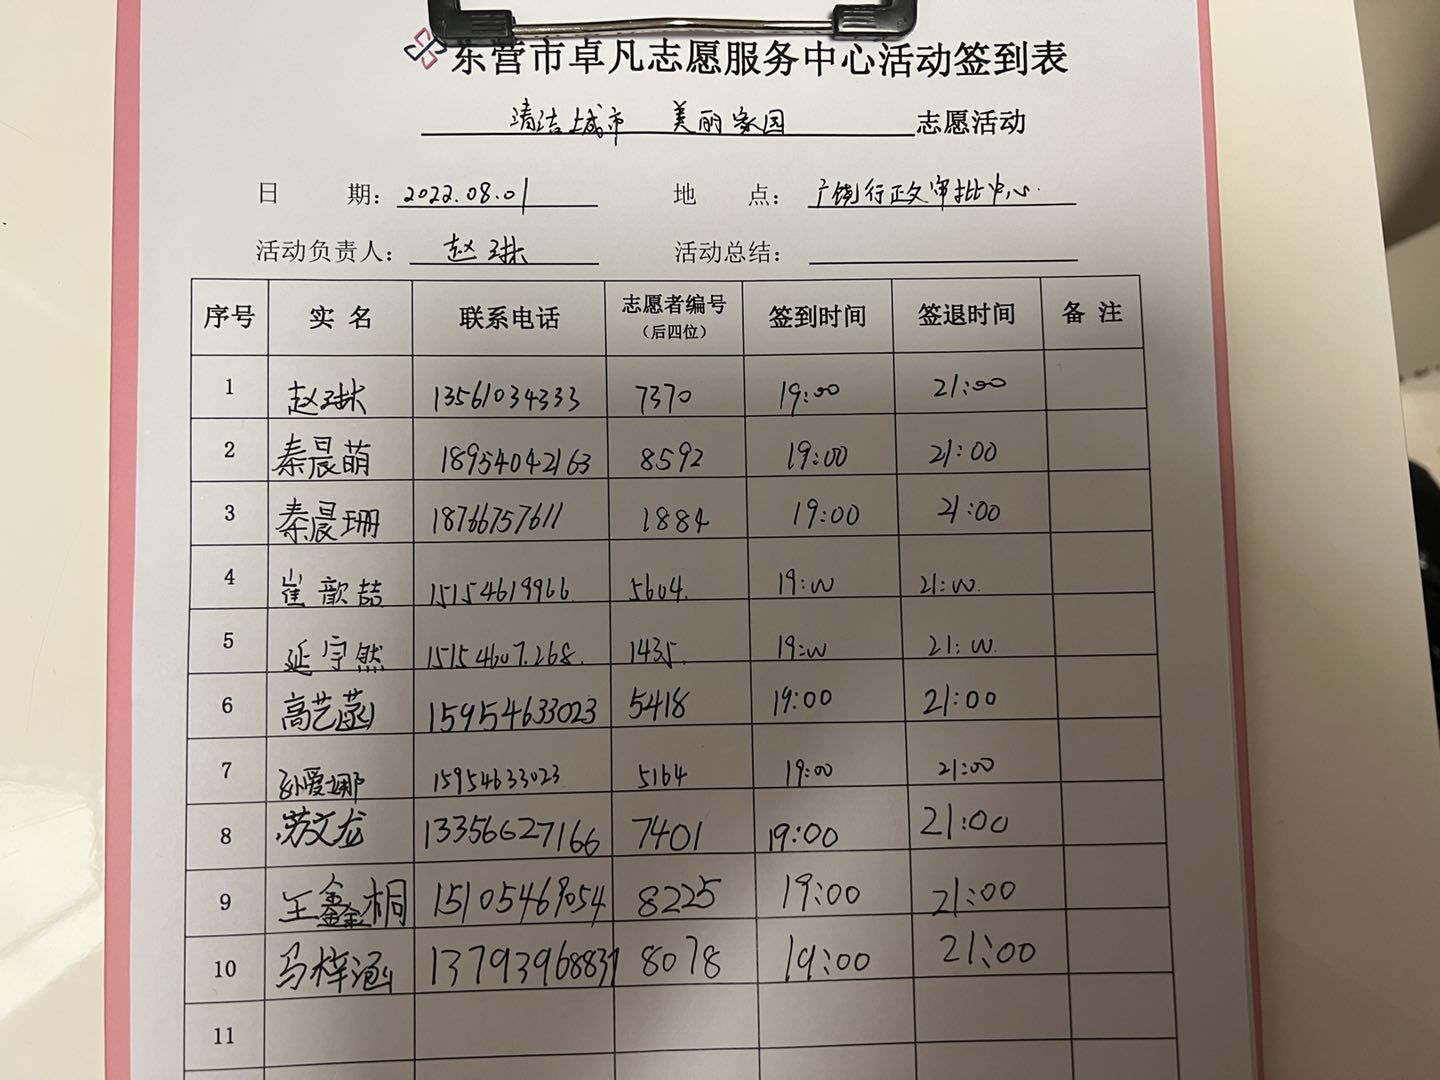 东营市卓凡志愿服务中心活动签到表
清洁城市 美丽家园 志愿活动
日 期: 2022.08.01 地 点: 广饶行政审批中心.
活动负责人: 赵琳 活动总结:
序号 实名 联系电话 志愿者编号 (后四位) 签到时间 签退时间 备注
1 赵琳 13561034333 7370 19:00 21:00
2 秦晨萌 18954042163 8592 19:00 21:00
3 秦晨珊 18766757611 1884 19:00 21:00
4 崔歆喆 15154619966 5604. 19:00 21:00.
5 延宇然 15154607.268. 1435. 19:00 21:00.
6 高艺菡 15954633023 5418 19:00 21:00
7 孙爱娜 15954633023 5164 19:00 21:00
8 苏文龙 13356627166 7401 19:00 21:00
9 王鑫桐 15105469054 8225 19:00 21:00
10 马梓涵 13793968837 8078 19:00 21:00
11